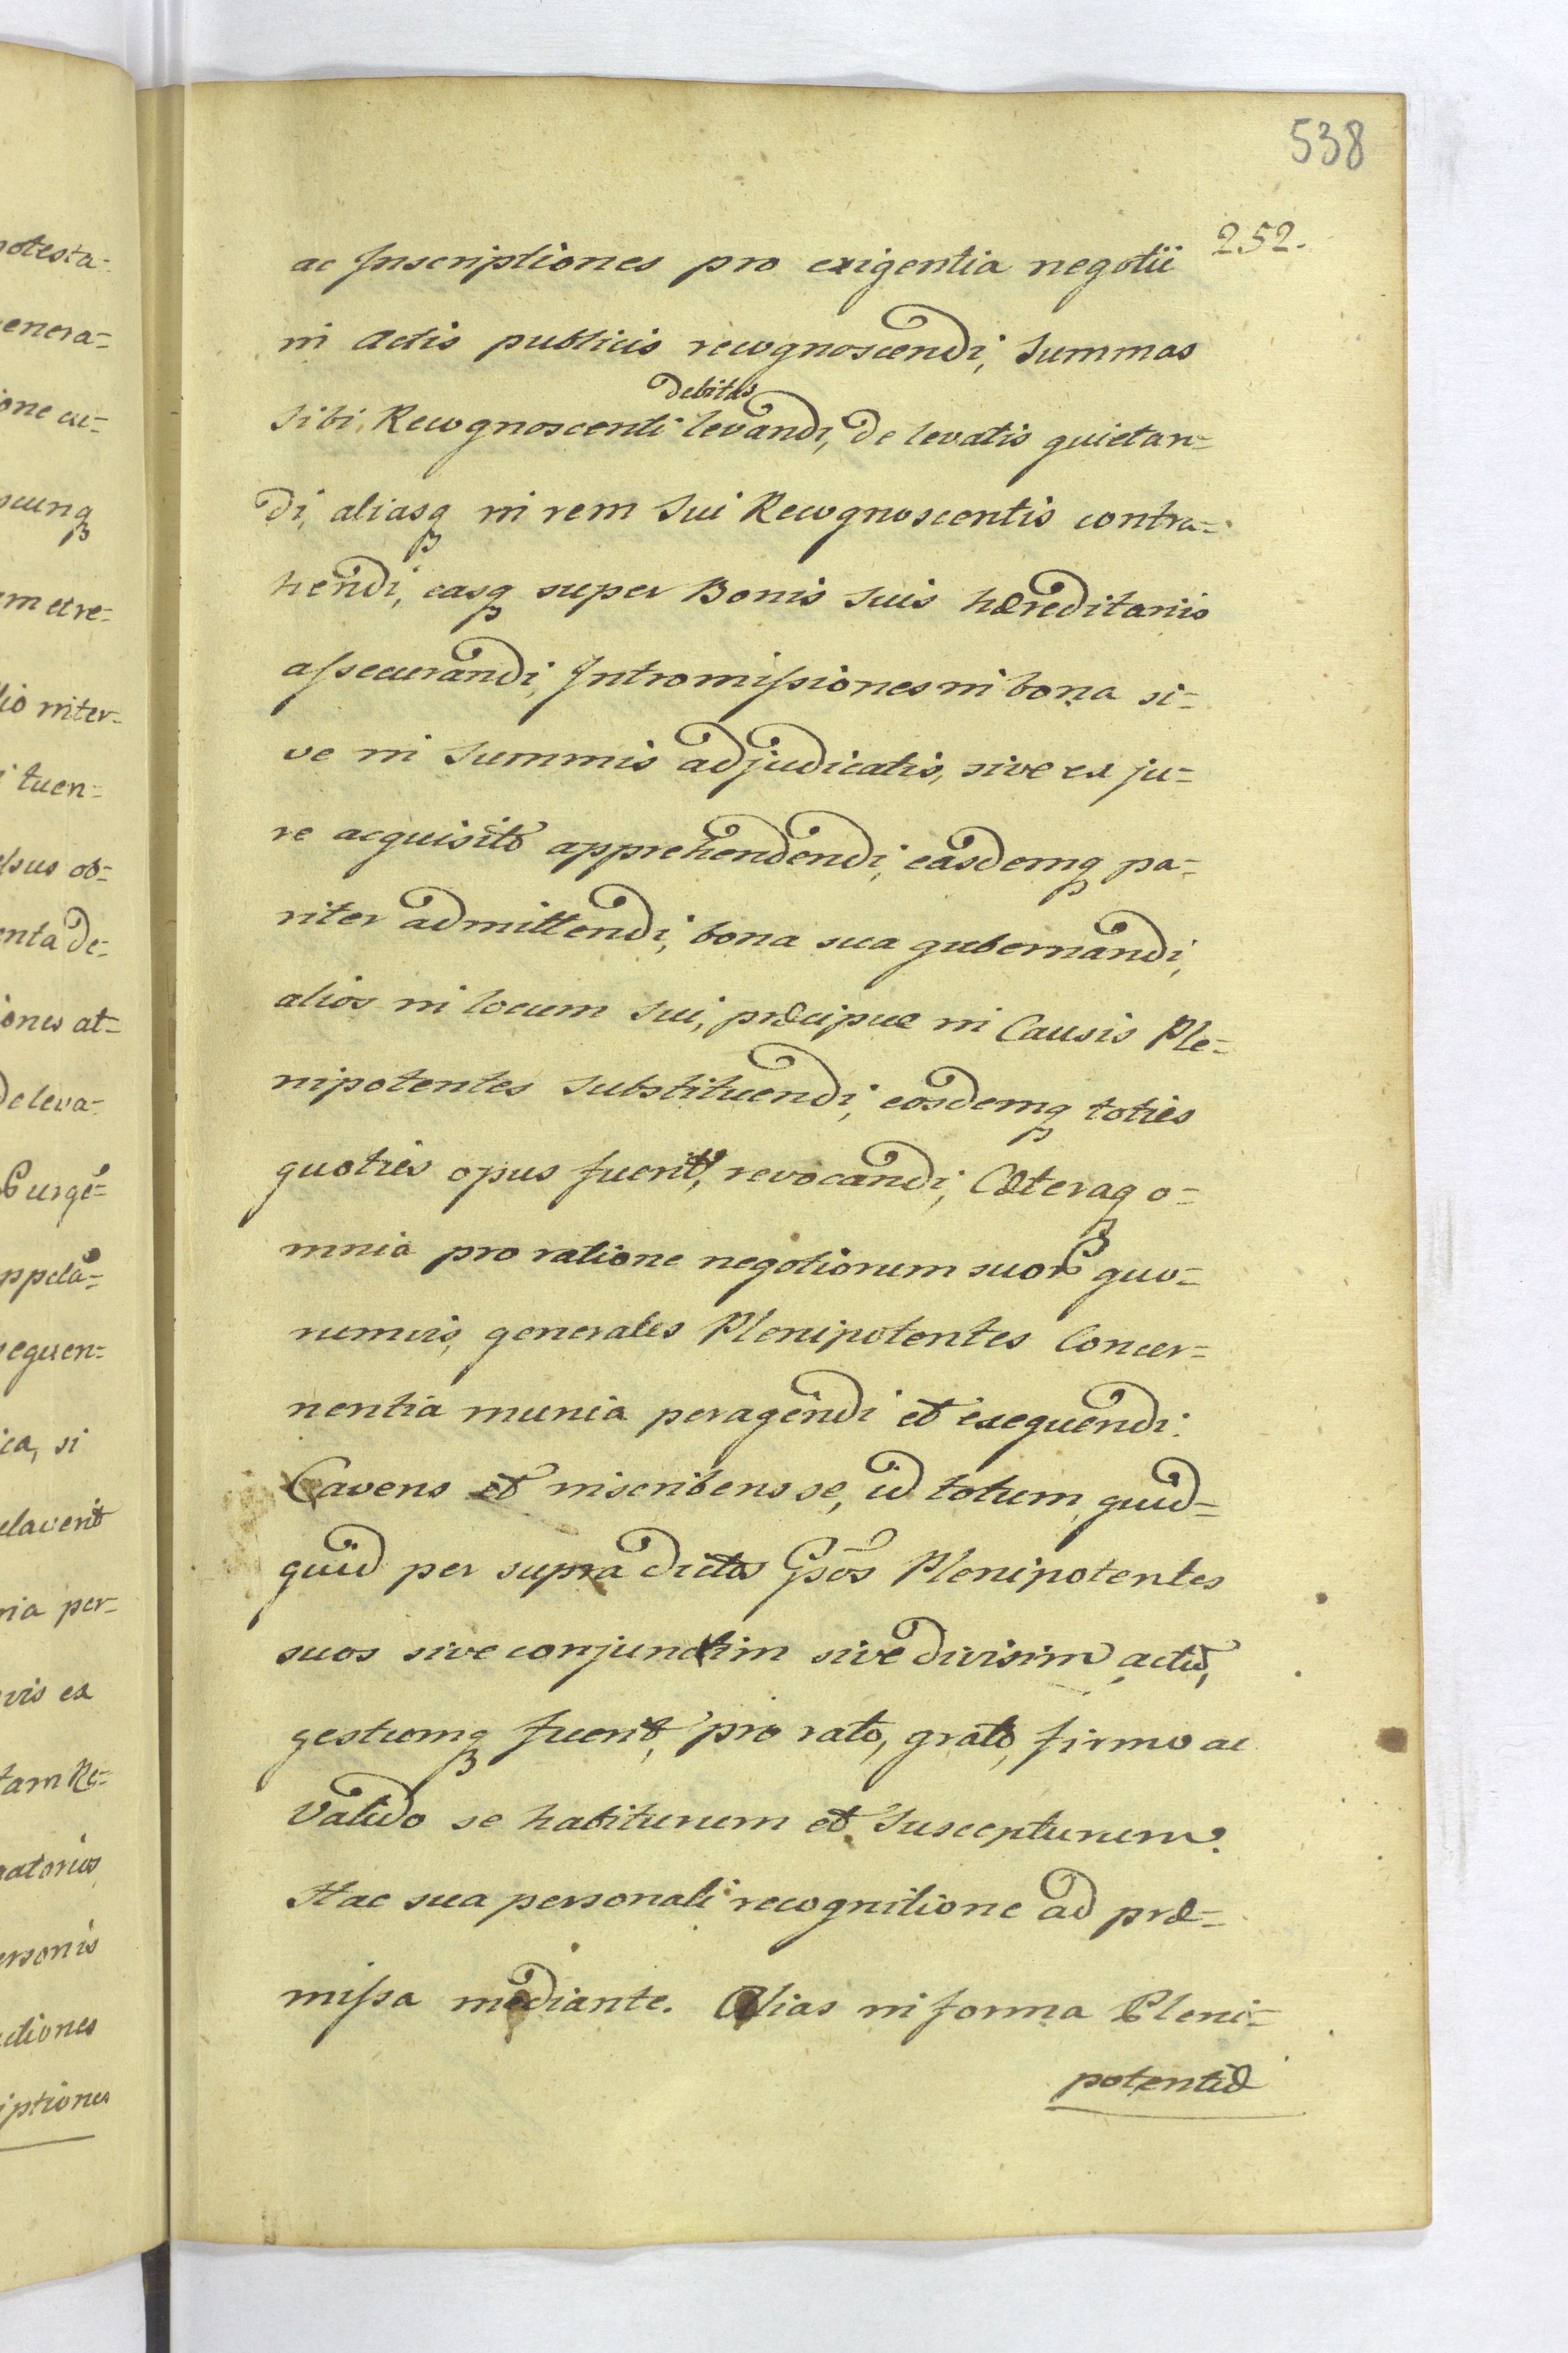 538
252.
ac Inscriptiones pro exigentia negotii
in Actis publicis recognoscendi, Summas
debitas
Sibi Recognoscenti levandi, de levatis quietan=
di, aliasq3 in rem Sui Recognoscentis contra=
hendi, easq3 super Bonis Suis hæreditariis
assecurandi, Intromissiones in bona si=
ve in Summis adjudicatis, sive ex ju=
re acquisito apprehendendi, easdemq3 pa=
riter admittendi, bona sua gubernandi,
alios in locum Sui, præcipue in Causis Ple=
nipotentes Substituendi, eosdemq3 toties
quoties opus fuerit, revocandi, Cæteraq3 o=
mnia pro ratione negotiorum suor quo=
rumvis, generales Plenipotentes Concer=
nentia munia peragendi et exequendi.
Cavens et inscribens se, id totum, quid=
quid per supra dictos Gsos Plenipotentes
suos sive conjunctim sive divisim actu,
gestumq3 fuerit, pro rato, grato, firmo ac
Valido se habiturum et Suscepturum.
Hac sua personali recognitione ad præ=
missa mediante. Alias in forma Pleni=
potentiæ
potesta=
enera=
ione
cunq3
em et re=
lio inter=
i tuen=
lsus ob=
enta de=
iones at=
De leva=
Purge=
ppela=
sequen=
ica, si
elaverit
nia per=
vis ex
tam Re=
atorios
ersonis
ctiones
iptiones